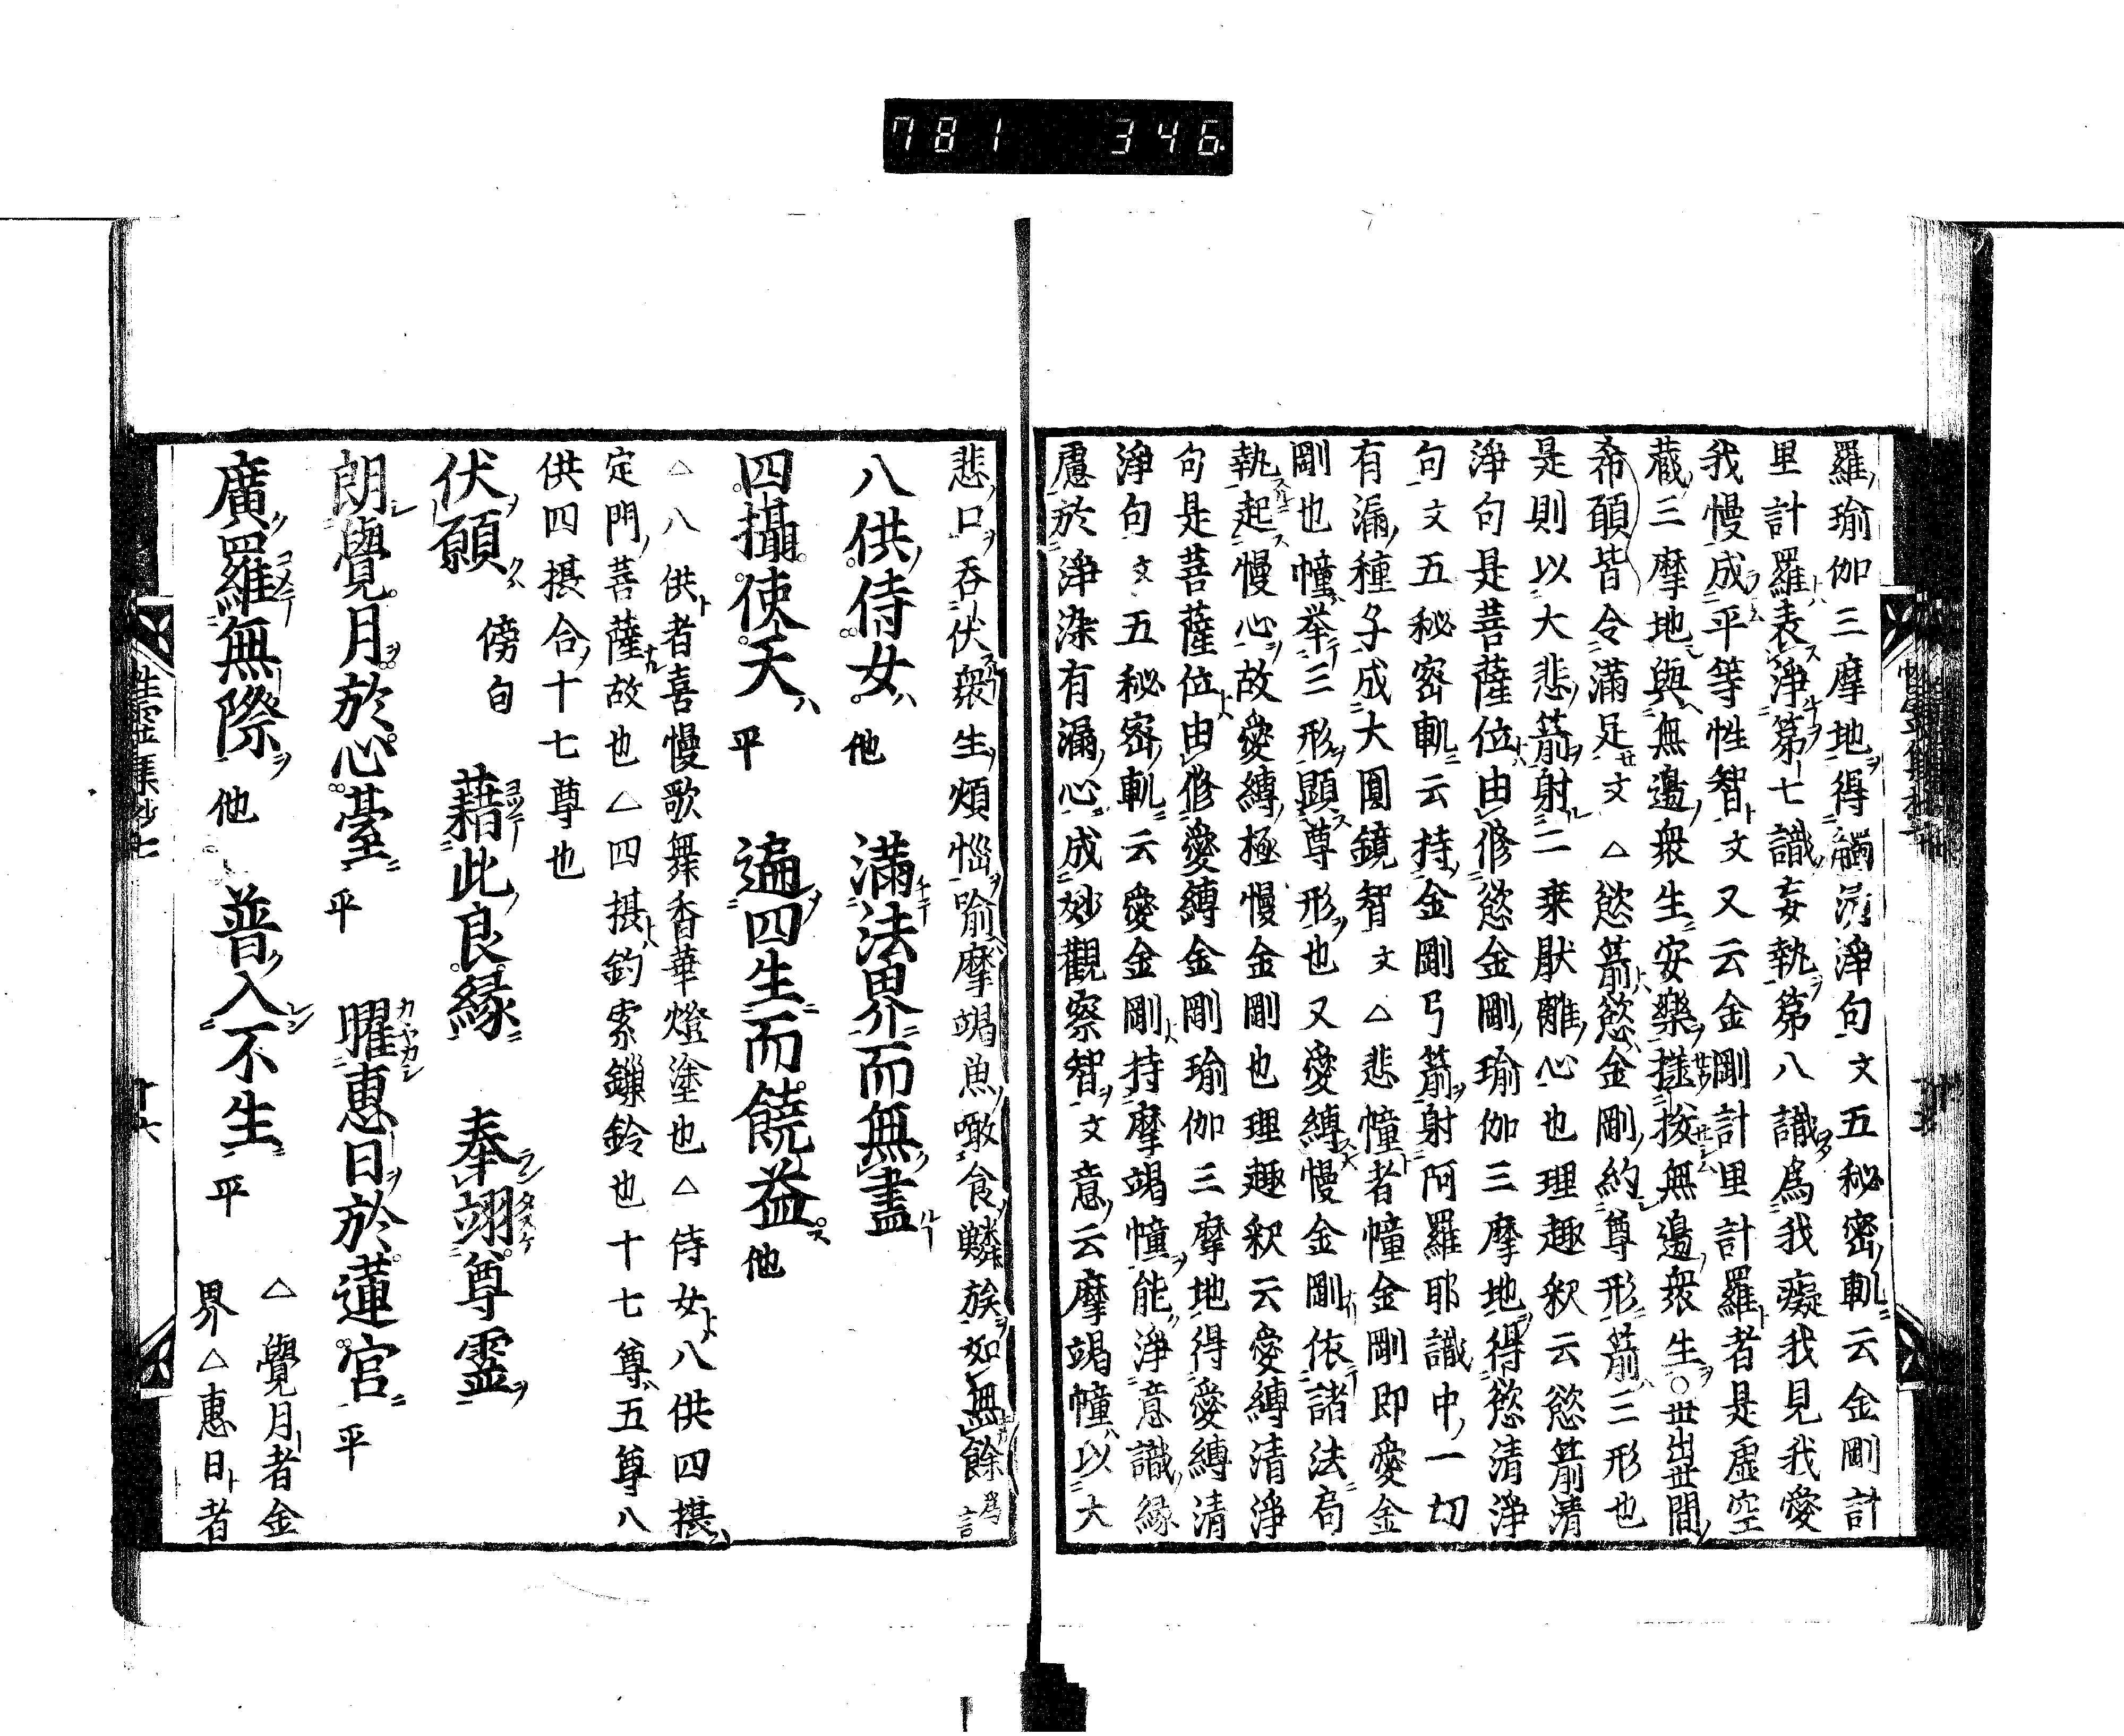 781 346
羅瑜伽三摩地得觸清淨句文五秘密軌云金剛計
里計羅表淨第七識妄執第八識為我癡我見我愛
我慢成平等性智文又云金剛計里計羅者是虛空
藏三摩地與無邊衆生安樂拔無邊衆生○世出世間
希願皆令滿足文△慾箭慾金剛約尊形箭三形也
是則以大悲箭射二乗猒離心也理趣釈云慾箭清
淨句是菩薩位由修慾金剛瑜伽三摩地得慾清淨
句文五秘密軌云持金剛弓箭射阿羅耶識中一切
有漏種子成大圓鏡智文△悲幢者幢金剛即愛金
剛也幢举三形顕尊形也又愛縛慢金剛依諸法
執起慢心故愛縛極慢金剛也理趣釈云愛縛清淨
句是菩薩位由修愛縛金剛瑜伽三摩地得愛縛清
淨句文五秘密軌云愛金剛持摩竭幢能淨意識縁
慮於淨染有漏心成妙觀察智文意云摩竭幢以大
悲口吞伏衆生煩惱喻摩竭魚噉食鱗族如無餘為言
八供侍女他 滿法界而無盡
四攝使天平 遍四生而饒益他
△八供者喜慢歌舞香華燈塗也△侍女八供四摂
定門菩薩故也△四摂鈎索鏁鈴也十七尊五尊八
供四摂合十七尊也
伏願傍句 藉此良縁 奉翊尊霊
朗覺月於心臺平 曜惠日於蓮宮平
廣羅無際他 普入不生平 △覺月者金
界△惠日者
十六